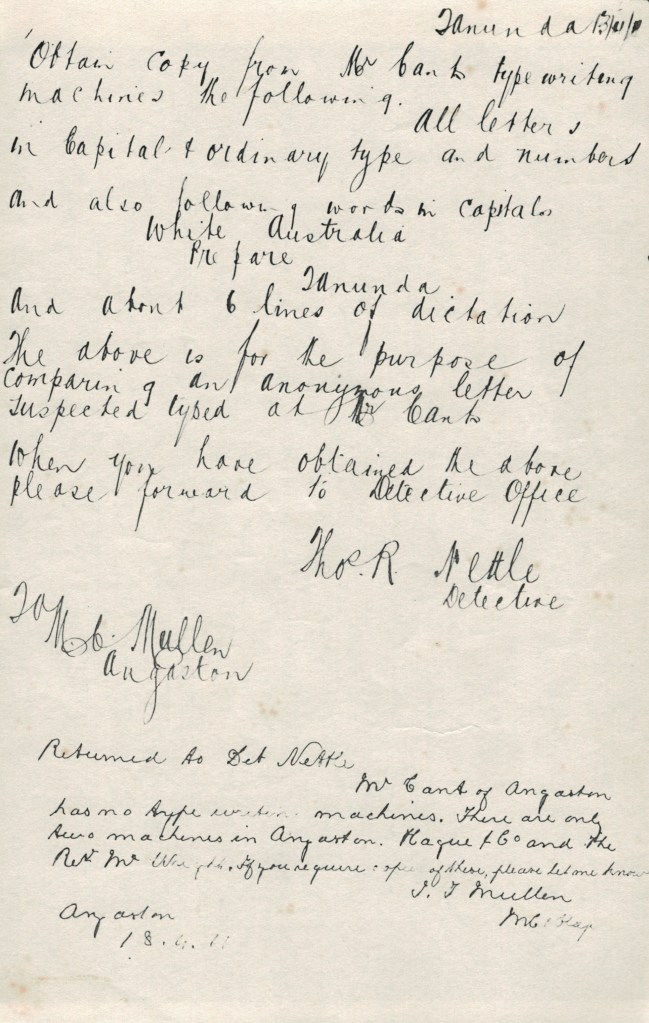 Tanunda 13/4/11
Obtain copy from Mr Cants typewriting
machines the following.
All letters
in Capital & ordinary type and numbers
and also following words in capitals
White Australia
Prepare
Tanunda
and about 6 lines of dictation
The above is for the purpose of
comparing an anonymous letter
suspected typed at Mr Cants
When you have obtained the above
please forward to Detective Office
Thos. R. Nettle
Detective
To
M.C. Mullen
Angaston
Returned to Det Nettle
Mr Cant of Angaston
has no type machines. There are only
two machines in Angaston. Hague & Co and the
Revd Mr If you require of these, please let me know
J. T Mullen
MC
Angaston
18.4.11